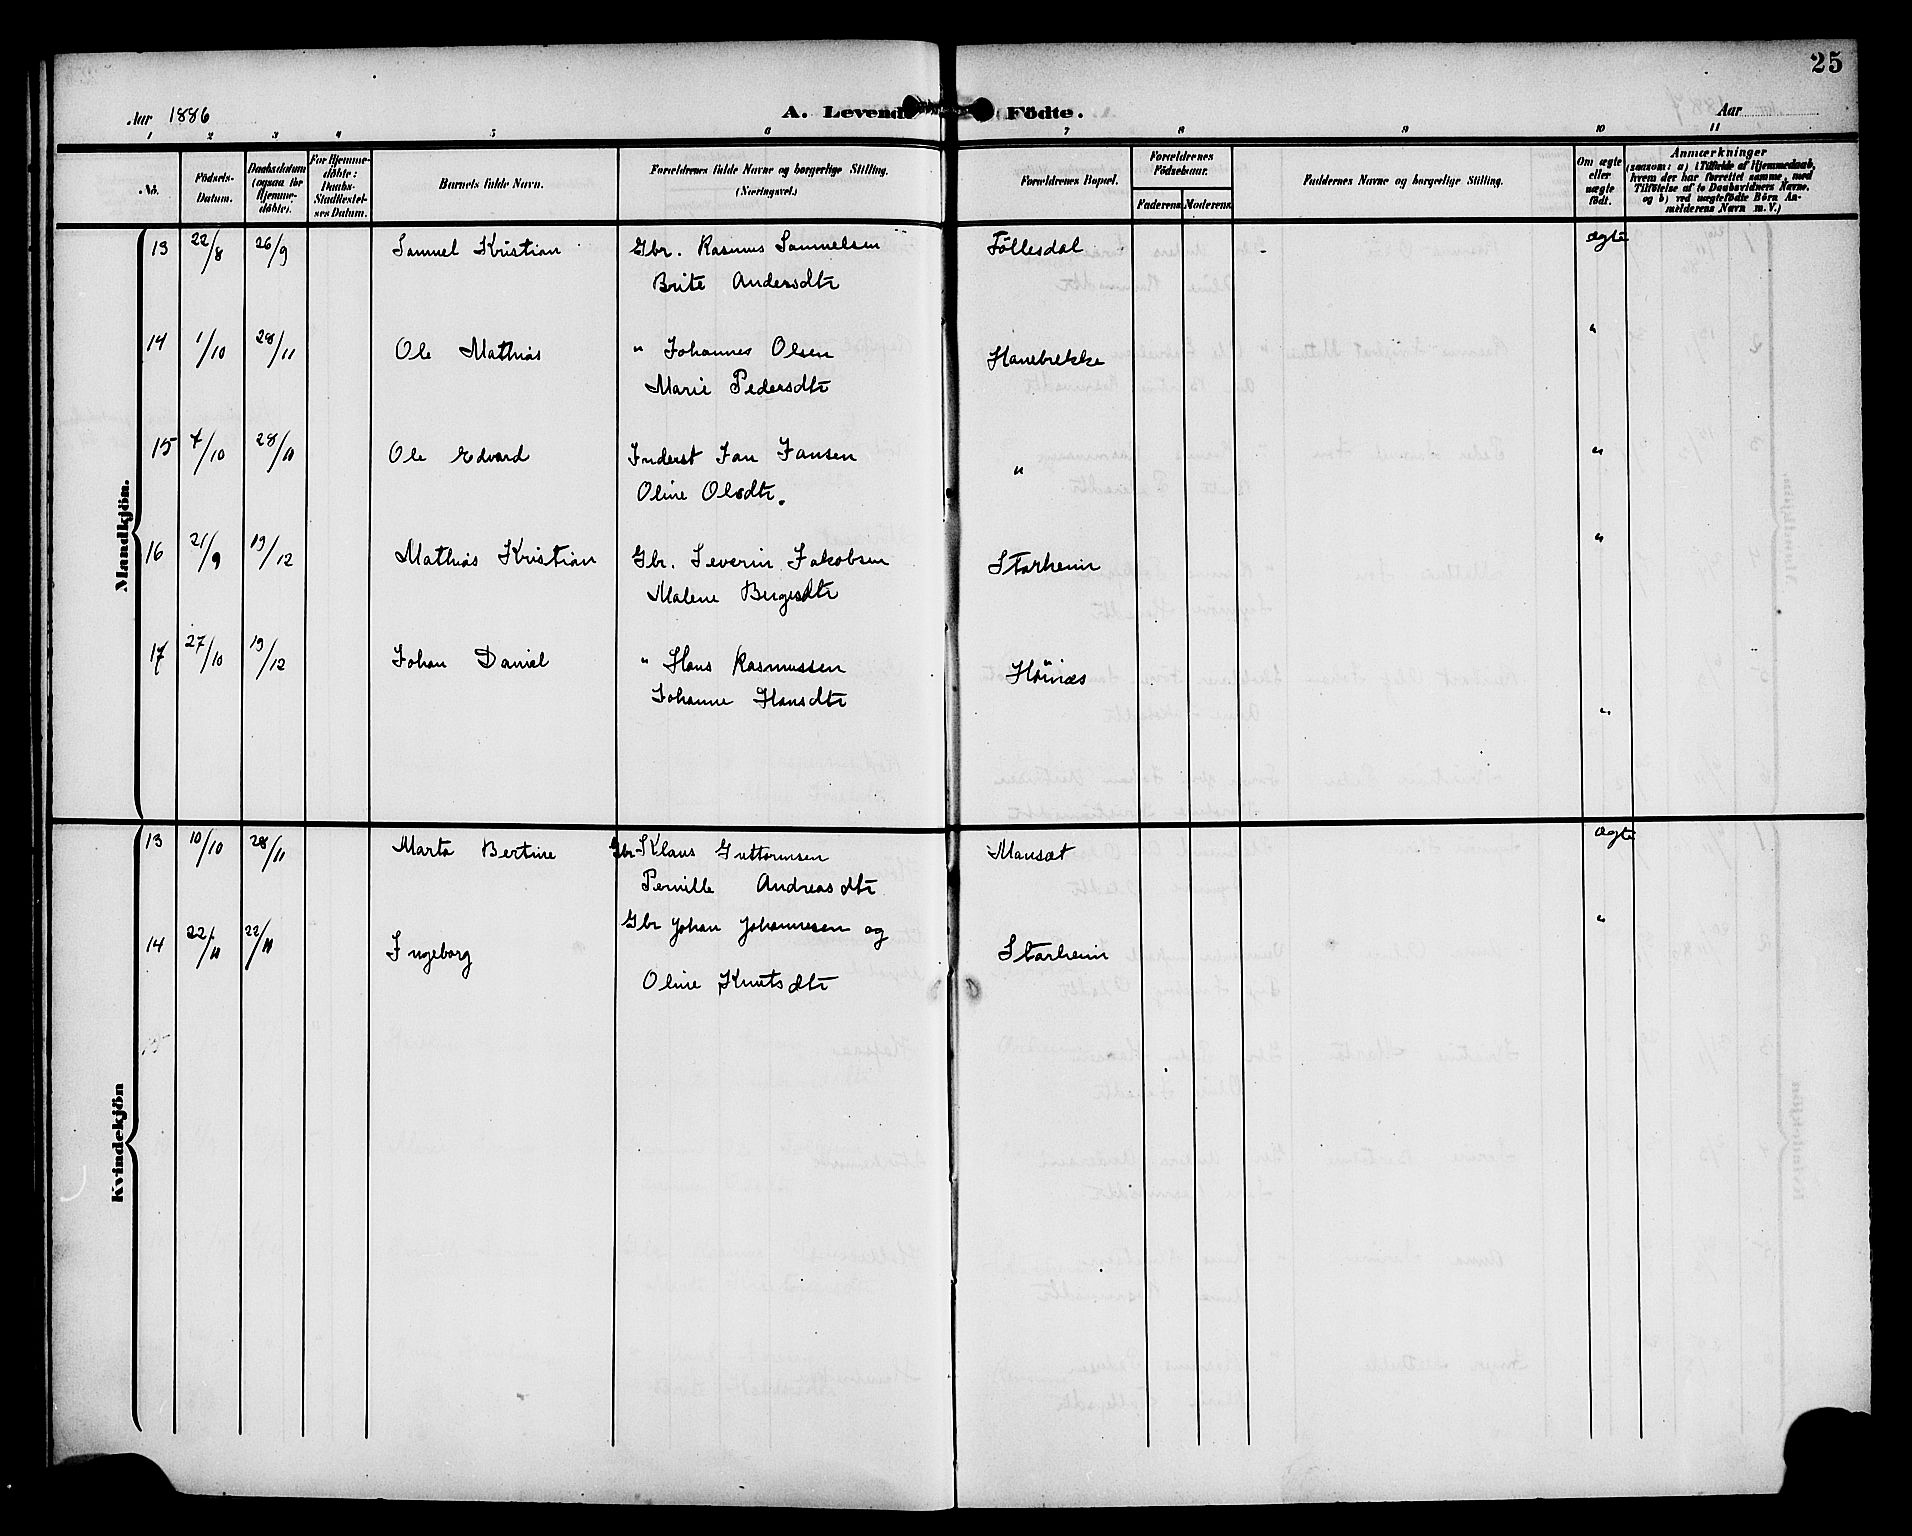 25
Aar 1886
A. Levende Födte.
Aar
1 2 3 4 5 6 7 8 9 10 11
No.
Födsels-Datum.
Daabsdatum (ogsaa for Hjemme-döbte).
For Hjemme-döbte: Daabs-Stadfæstel-ses Datum.
Barnets fulde Navn.
Forældrenes fulde Navne og borgerlige Stilling. (Næringsvei.)
Forældrenes Bopæl.
Forældrenes Födselsaar.
Faderens. Moderens.
Faddernes Navne og borgerlige Stilling.
Om ægte eller uægte födt.
Anmærkninger
(saasom: a) i Tilfælde af Hjemmedaab, hvem der har forrettet samme, med Tilföielse af to Daabsvidners Navne, og b) ved uægtefödte Börn An-melderens Navn m. V.)
Mandkjön.
13 22/8 26/9 Samuel Kristian Gbr. Rasmus Samuelsen Föllesdal ægte
Brite Andersdtr
14 1/10 28/11 Ole Mathias " Johannes Olsen Hanebrekke "
Marie Pedersdtr
15 7/10 28/11 Ole Edvard Inderst Jan Jansen " "
Oline Olsdtr.
16 21/9 19/12 Mathias Kristian Gbr. Severin Jakobsen Starheim "
Malene Bergesdtr
17 27/10 19/12 Johan Daniel " Hans Rasmussen Hörnæs
Johanne Hansdtr "
Kvindekjön
13 10/10 28/11 Marta Bertine Gbr Klaus Guttormsen Mausæt ægte
Pernille Andreasdtr
14 22/11 22/11 Ingeborg Gbr Johan Johannesen og Starheim "
Oline Knutsdtr
15